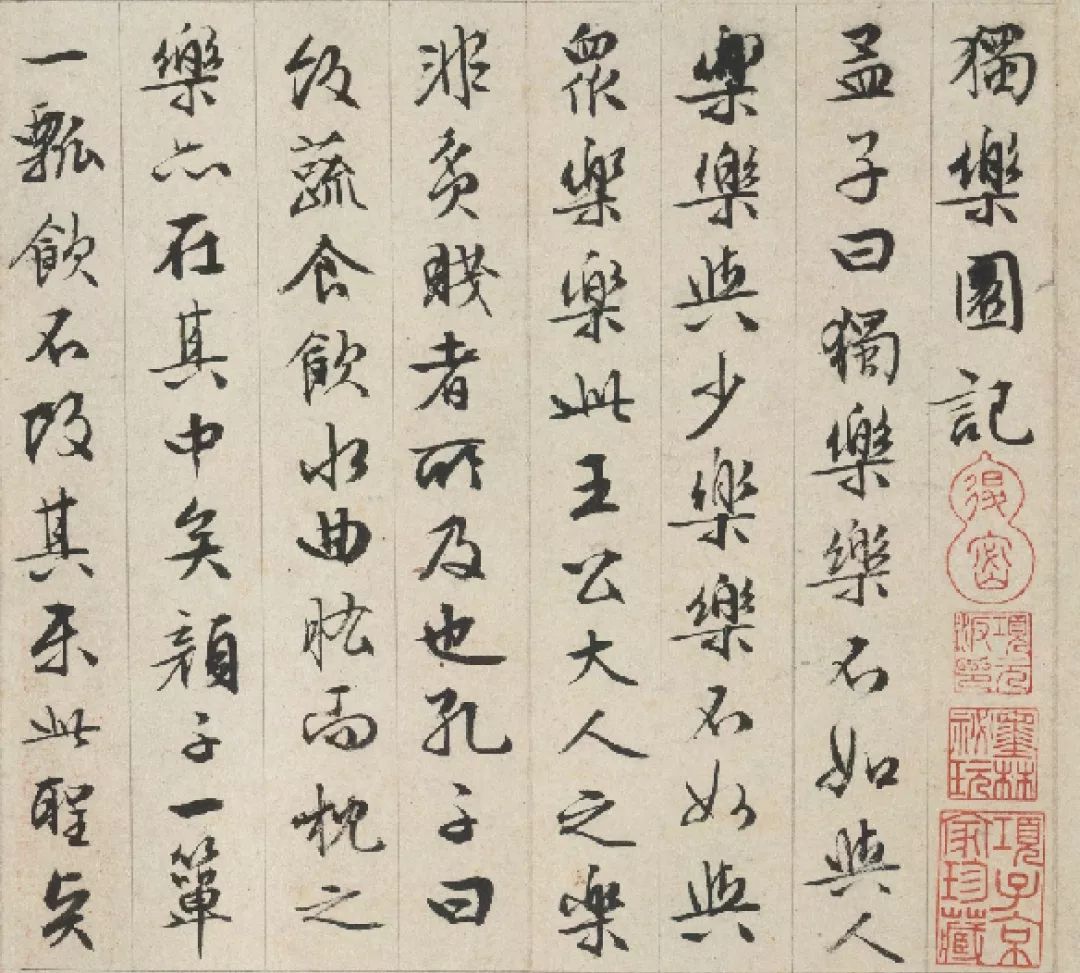 獨樂園記
孟子曰獨樂樂不如與人
樂樂與少樂樂不如與
眾樂樂此王公大人之樂
非貧賤者所及也孔子曰
飯蔬食飲水曲肱而枕之
樂亦在其中矣顏子一簞
一瓢飲不改其樂此聖賢
退密
項元汴印
墨林祕玩
項子京家珍藏